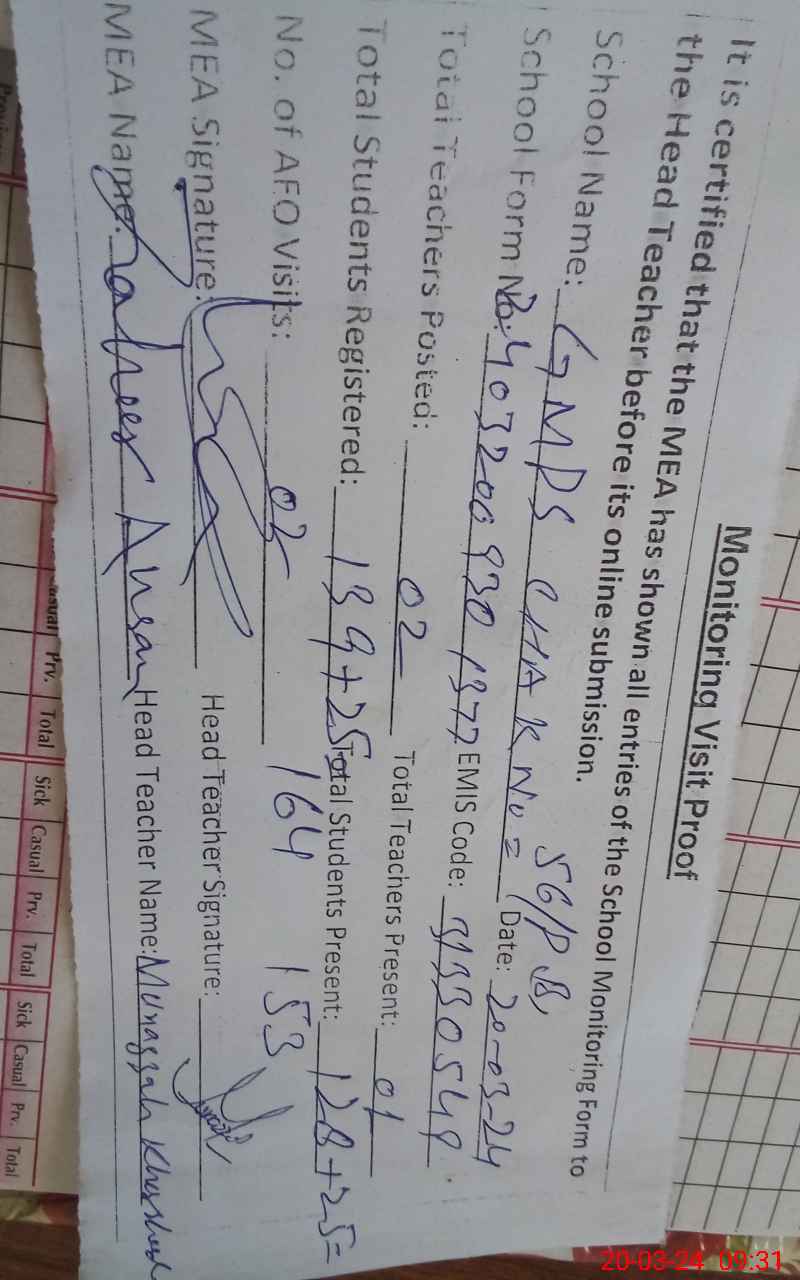 Monitoring Visit Proof
It is certified that the MEA has shown all entries of the School Monitoring Form to
the Head Teacher before its online submission.
School Name: GMPS CHAK NO = 56/P B,
School Form No: Date: 20-03-24
EMIS Code:
Total Teachers Posted: 02 Total Teachers Present: 01
Total Students Registered: 139+25 Total Students Present: 128+25=
164 153
No. of AFO Visits: 02
MEA Signature: Head Teacher Signature:
MEA Name: Head Teacher Name: Munazzah Khurshid
Casual Prv. Total Sick Casual Prv. Total Sick Casual Prv. Total
20-03-24 09:31